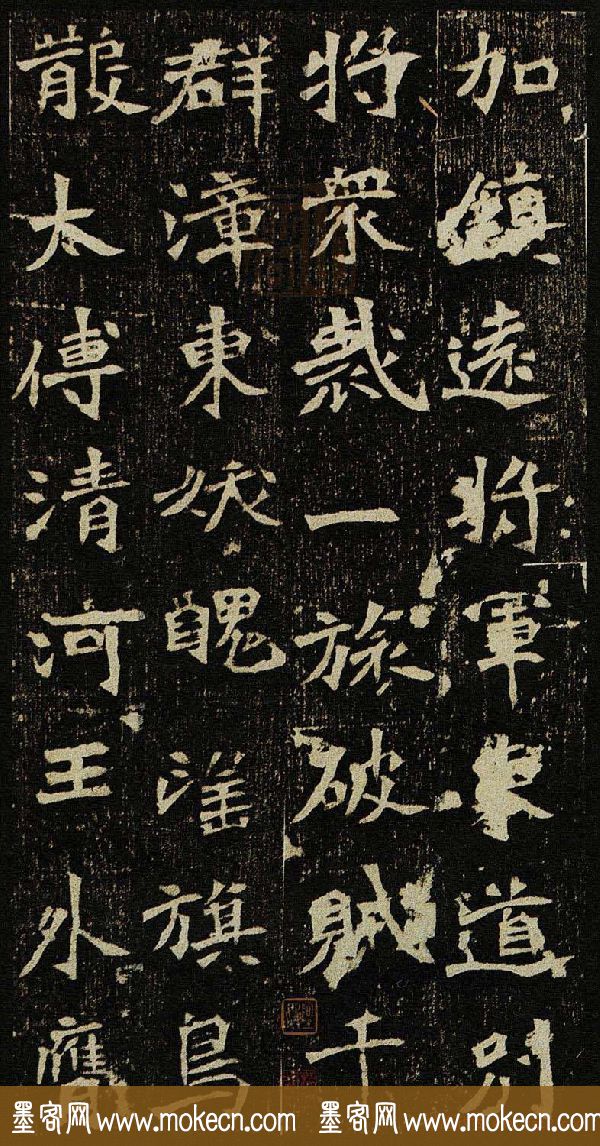 加鎮遠將軍東道別
將衆裁一旅破賊千
群漳東妖醜望旗鳥
散太傅清河王外膺
墨客网 www.mokecn.com 墨客网 www.mokecn.com